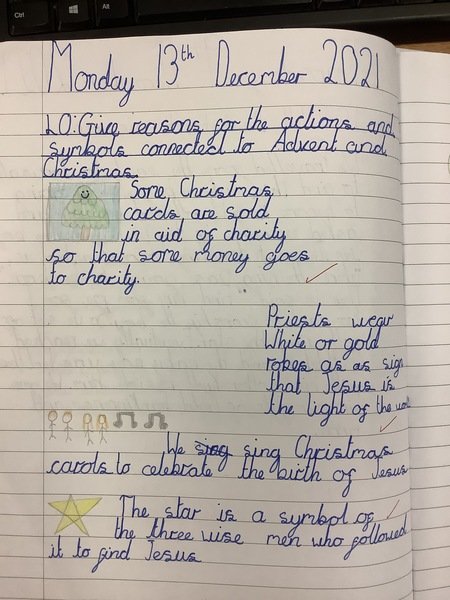 Win
Alt
Ctrl
Monday 13th December 2021
LO: Give reasons for the actions and
symbols connected to Advent and
Christmas.
Some Christmas
cards are sold
in aid of charity
so that some money goes
to charity.
Priests wear
White or gold
robes as as sign
that Jesus is
the light of the
We sing sing Christmas
carols to celebrate the birth of Jesus
The star is a symbol of
the three wise men who followed
it to find Jesus